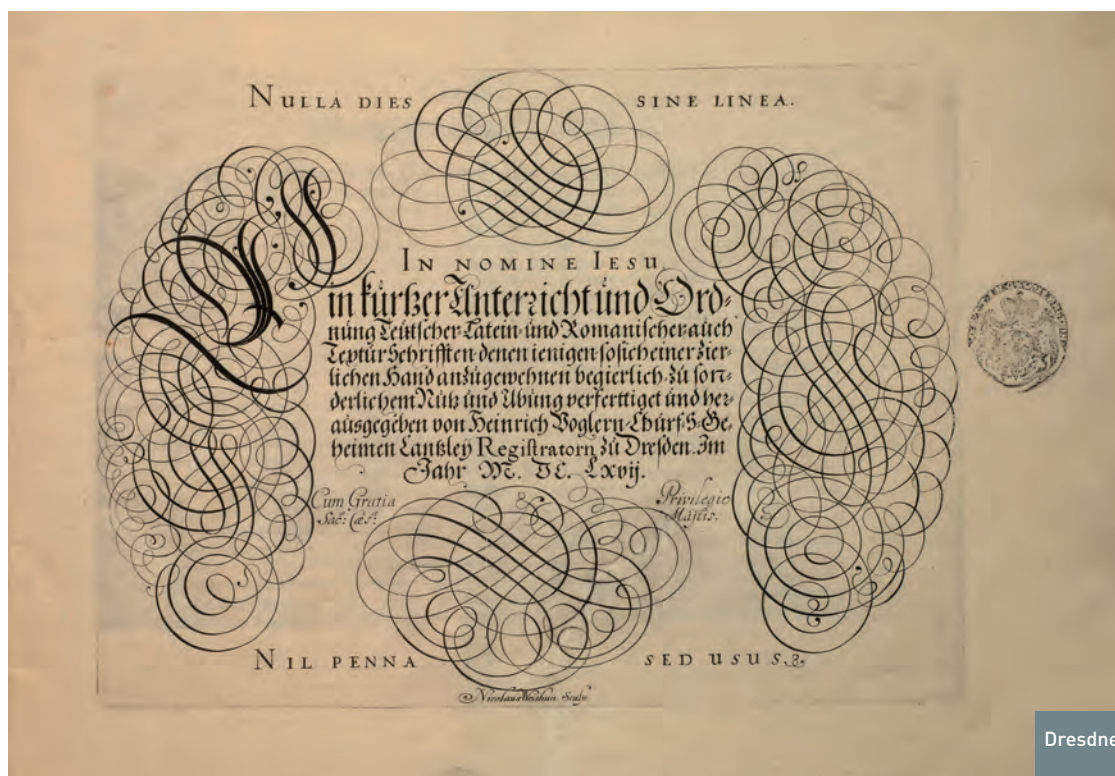 NULLA DIES SINE LINEA.
IN NOMINE IESU
Ein kürtzer Unterricht und Ord-
nung Teütscher Latein und Romanischer auch
Textür Schrifften denen ienigen so sich einer zier-
lichen Hand anzügewehnen begierlich zü son-
derlichem Nütz und Übüng verferttiget und her-
aüsgegeben von Heinrich Voglern Chürf. S. Ge-
heimen Cantzley Registratorn zü Dresden. Im
Jahr M. DC. Lxvij.
Cum Gratia Privilegio
Sac: Cæs: Maiis.
NIL PENNA SED USUS.
Nicolaus Weishun Sculp.
Dresdne